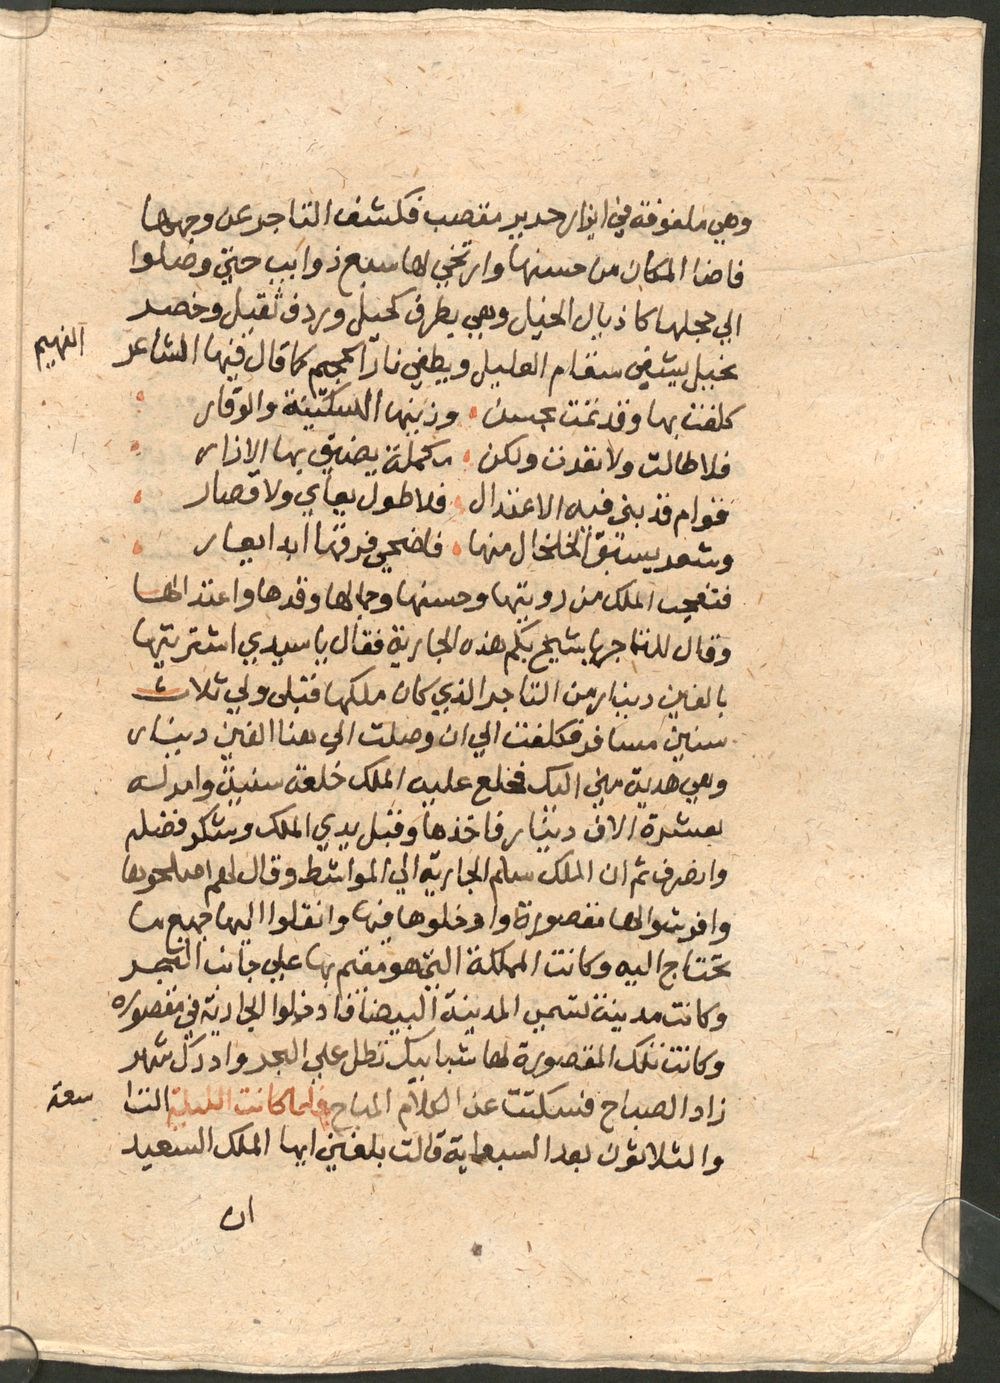 وهي ملفوفة في ازار حرير مقصب فكشف التاجر عن وجهها
فاضا المكان من حسنها وارتخي لها سبع ذوايب حتي وصلوا
الي حجلها كاذيال الخيل وهي بطرف كحيل وردف ثقيل وخصر
نحيل يشفي سقام العليل ويطفي نار الجحيم كما قال فيها الشاعر
الفهيم
كلفت بها وقد تمت بحسن وزينها السكينة والوقار
فلا طالت ولا نقدت ولكن مكملة يضيق بها الازار
قوام قد بني فيه الاعتدال فلا طول يعاي ولا قصار
وشعر يستبق الخلخال منها فاضحي فرقها ابدا يعار
فتعجب الملك من رويتها وحسنها وجمالها وقدها واعتدالها
وقال للتاجر يا شيخ بكم هذه الجارية فقال يا سيدي اشتريتها
بالفين دينار من التاجر الذي كان ملكها قبلي ولي ثلاث
سنين مسافر فكلفت الي ان وصلت الي هنا الفين دينار
وهي هدية مني اليك فخلع عليه الملك خلعة سنية وامر له
بعشرة الاف دينار فاخذها وقبل يدي الملك وشكر فضله
وانصرف ثم ان الملك سلم الجارية الي المواشط وقال لهم اصلحوها
وافرشوا لها مقصورة وادخلوها فيها وانقلوا اليها جميع ما
تحتاج اليه وكانت المملكة التي هو مقيم بها علي جانب البحر
وكانت مدينة تسمي المدينة البيضا فادخلوا الجارية في مقصوره
وكانت تلك المقصورة لها شبابيك تطل علي البحر وادرك شهر
زاد الصباح فسكتت عن الكلام المباح فلما كانت الليلة التا
سعة
والثلاثون بعد السبعماية قالت بلغني ايها الملك السعيد
ان